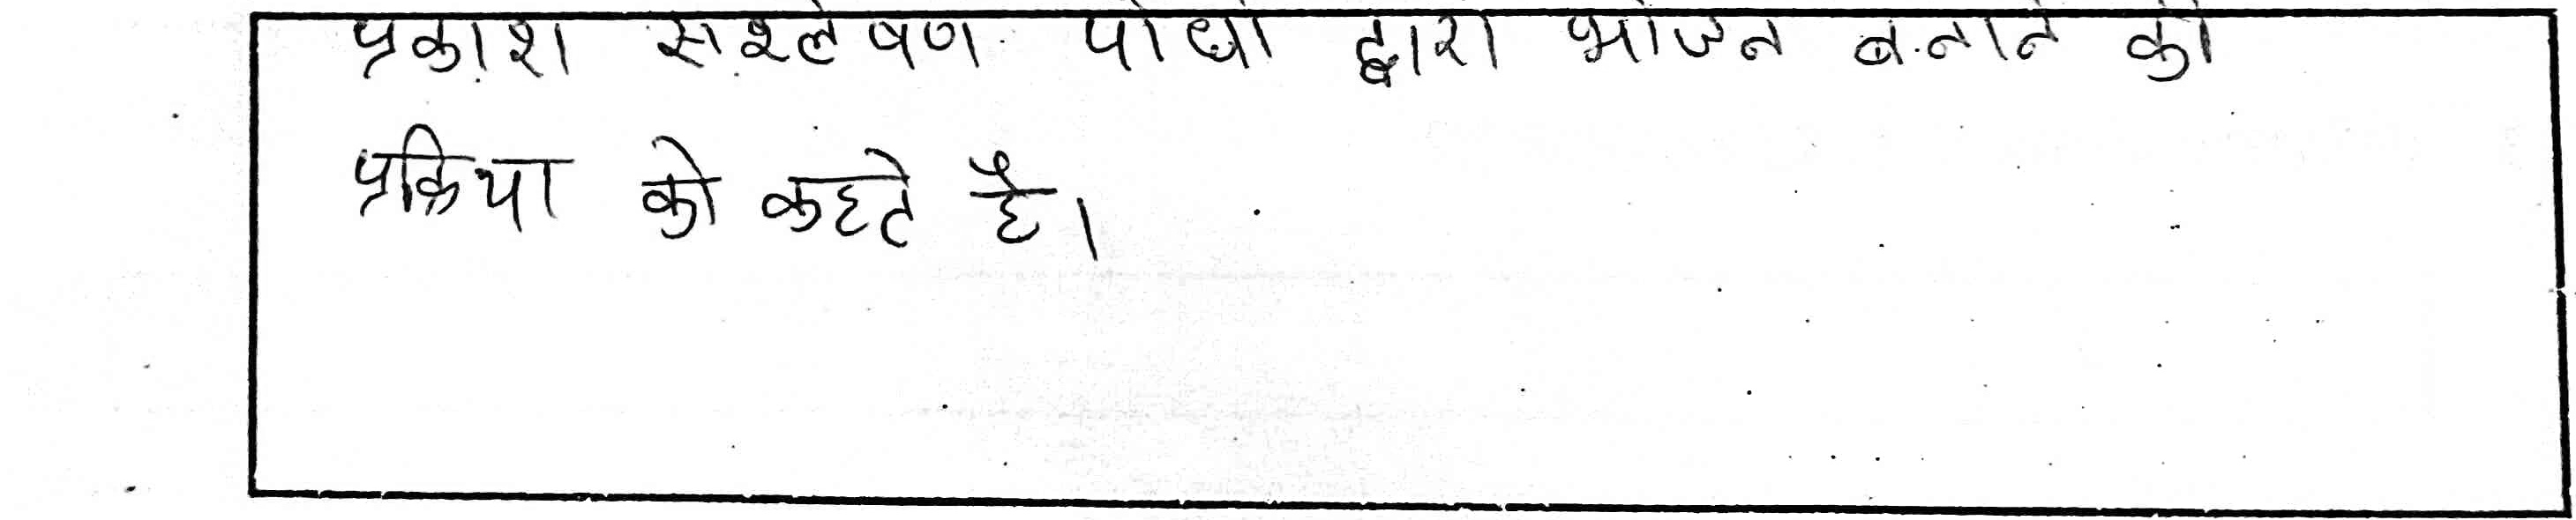 प्रकाश संश्लेषण पौधों द्वारा भोजन बनाने की
प्रक्रिया को कहते है।